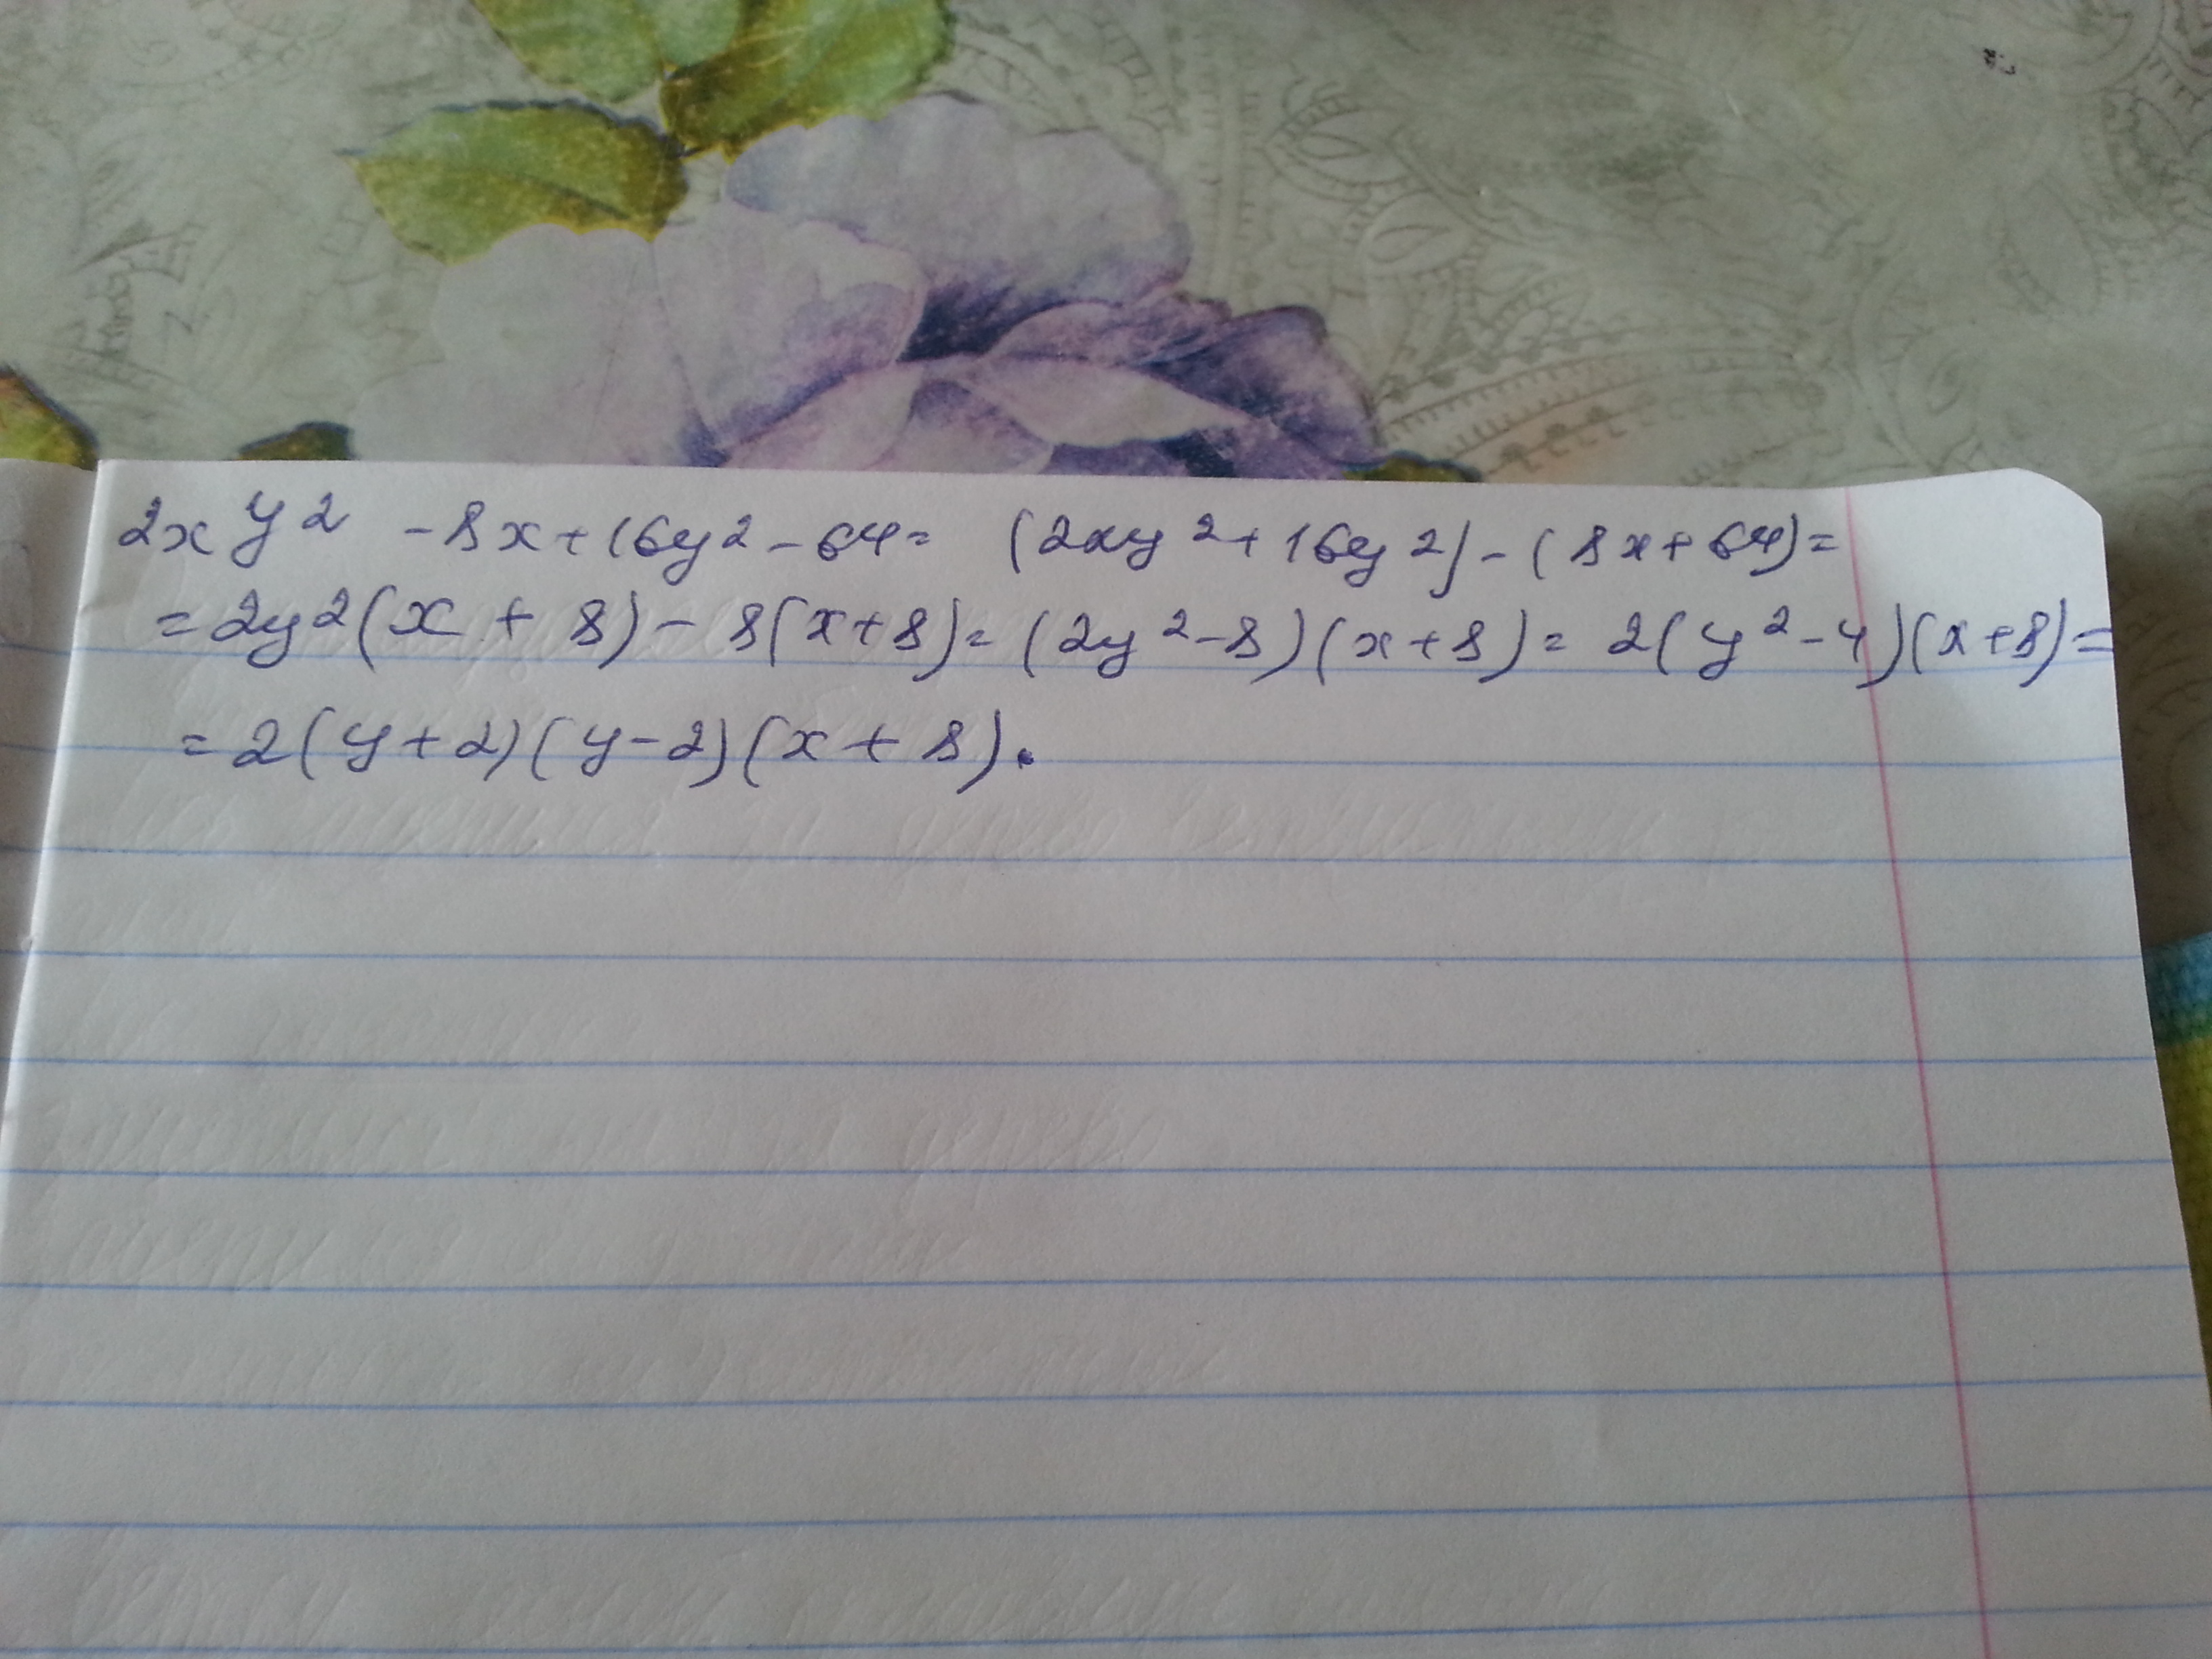 2xy² - 8x + 16y² - 64 = (2xy² + 16y²) - (8x + 64) =
= 2y²(x + 8) - 8(x + 8) = (2y² - 8)(x + 8) = 2(y² - 4)(x + 8) =
= 2(y + 2)(y - 2)(x + 8).